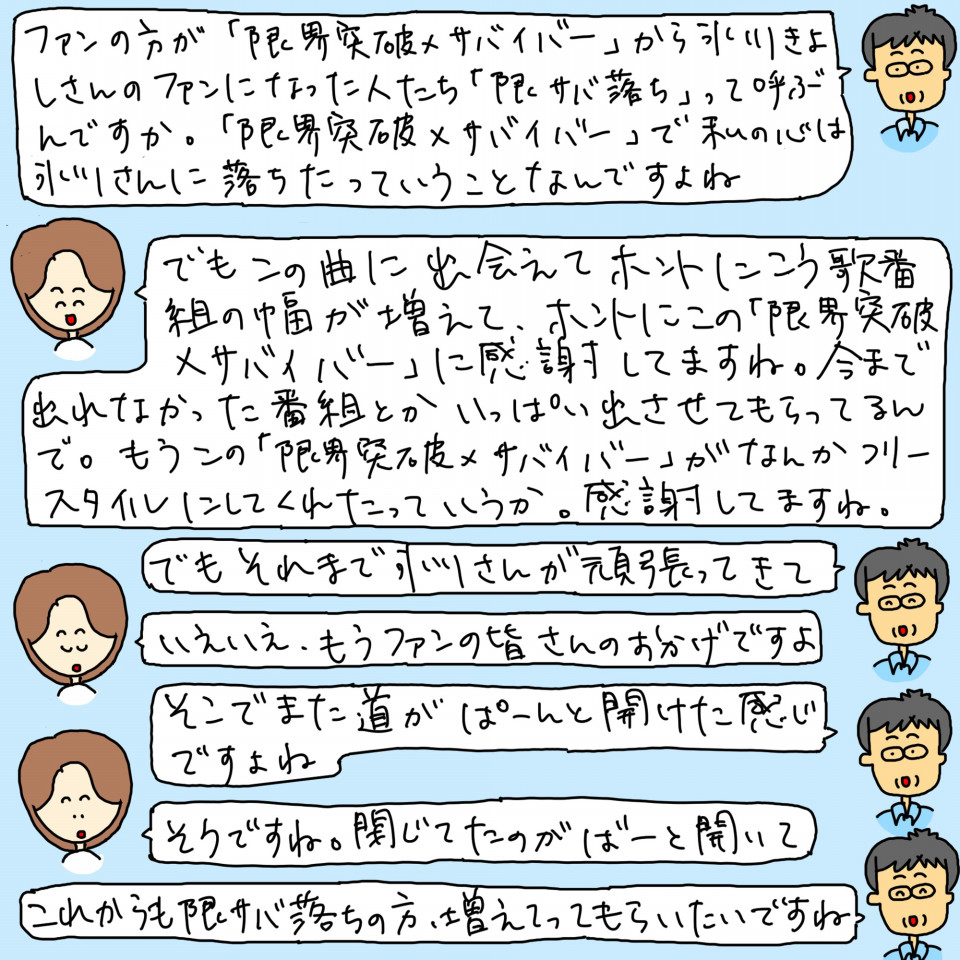 ファンの方が「限界突破×サバイバー」から氷川きよ
しさんのファンになった人たち「限サバ落ち」って呼ぶ
んですか。「限界突破×サバイバー」で私の心は
氷川さんに落ちたっていうことなんですよね
でもこの曲に出会えてホントにこう歌番
組の幅が増えて、ホントにこの「限界突破
×サバイバー」に感謝してますね。今まで
出れなかった番組とかいっぱい出させてもらってるん
で。もうこの「限界突破×サバイバー」がなんかフリー
スタイルにしてくれたっていうか。感謝してますね。
でもそれまで氷川さんが頑張ってきて
いえいえ、もうファンの皆さんのおかげですよ
そこでまた道がぱーんと開けた感じ
ですよね
そうですね。閉じてたのがばーと開いて
これからも限サバ落ちの方、増えてってもらいたいですね